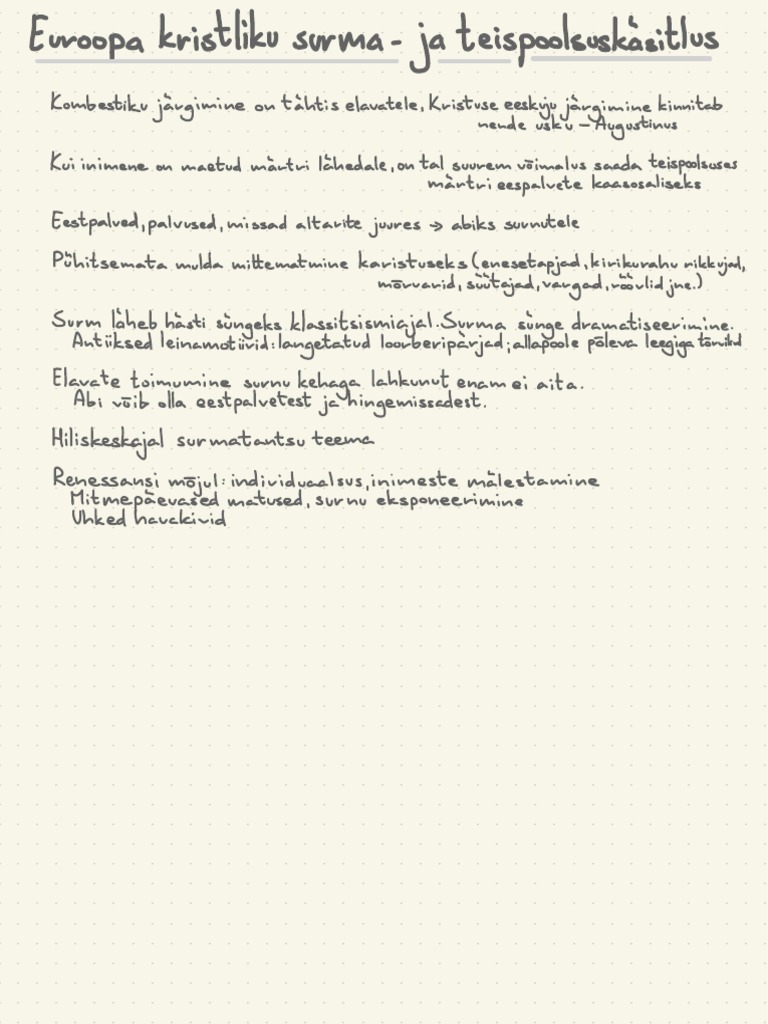 Euroopa kristliku surma- ja teispoolsuskäsitlus
Kombestiku järgimine on tähtis elavatele, Kristuse eeskuju järgimine kinnitab
nende usku – Augustinus
Kui inimene on maetud märtri lähedale, on tal suurem võimalus saada teispoolsuses
märtri eespalvete kaasosaliseks
Eestpalved, palvused, missad altarite juures → abiks surnutele
Pühitsemata mulda mittematmine karistuseks (enesetapjad, kirikurahu rikkujad,
mõrvarid, süütajad, vargad, röövlid jne.)
Surm läheb hästi süngeks klassitsismiajal. Surma sünge dramatiseerimine.
Antiiksed leinamotiivid: langetatud loorberipärjad; allapoole põleva leegiga tõrvikud
Elavate toimumine surnu kehaga lahkunut enam ei aita.
Abi võib olla eestpalvetest ja hingemissadest.
Hiliskeskajal surmatantsu teema
Renessansi mõjul: individuaalsus, inimeste mälestamine
Mitmepäevased matused, surnu eksponeerimine
Uhked hauakivid